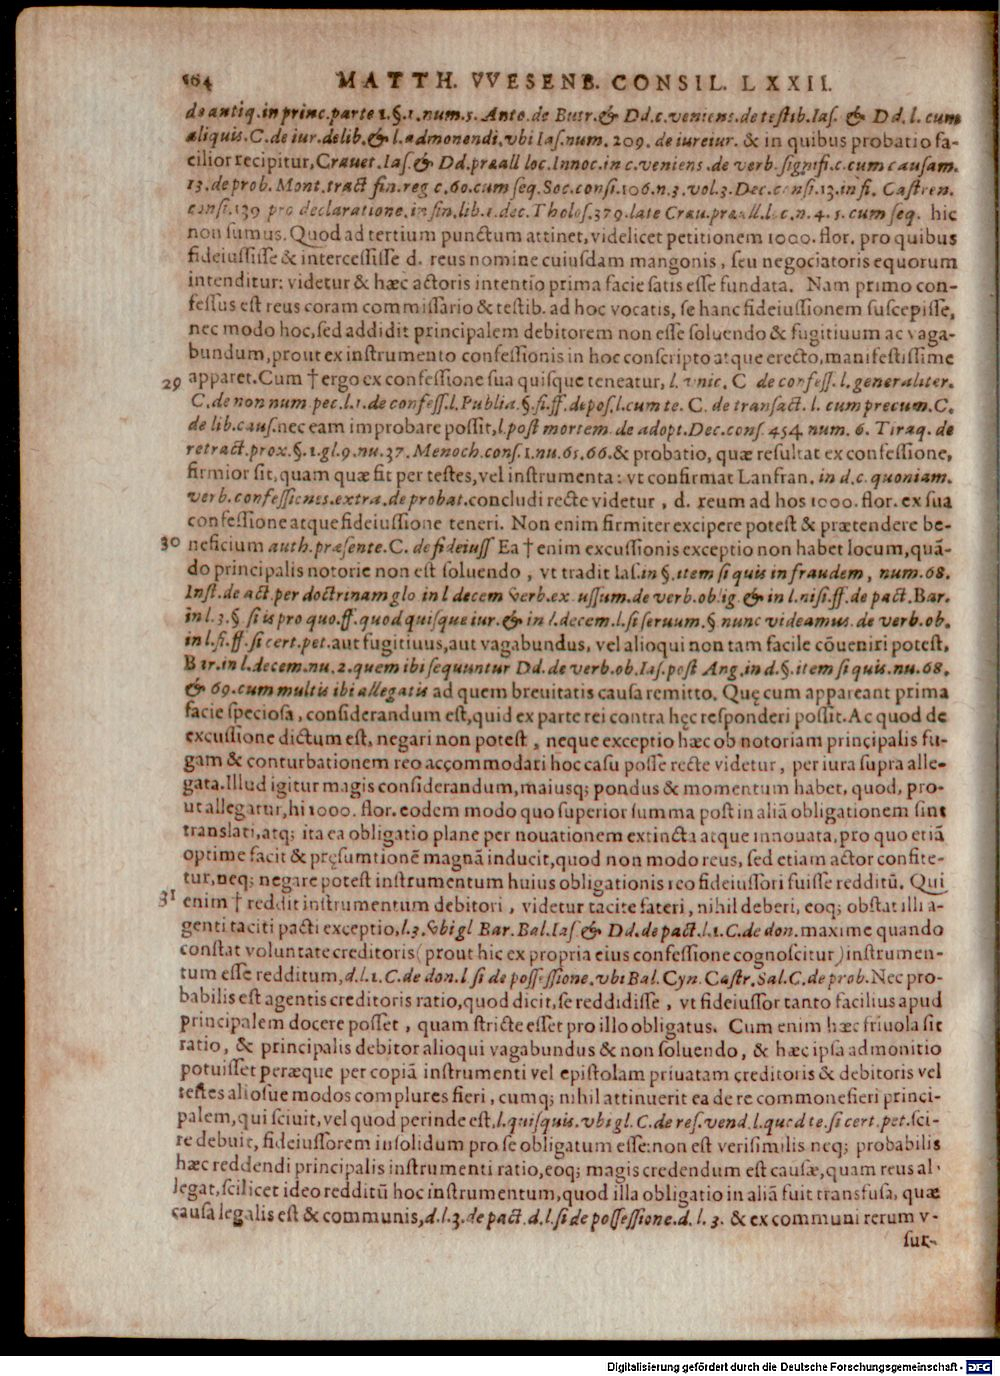 564 MATTH. VVESENB. CONSIL. LXXII.
de antiq. in princ. parte 1. §. 1. num. 5. Anto. de Butr. & Dd. c. veniens. de testib. Ias. & Dd. l. cum
aliquis. C. de iur. delib. & l. admonendi. vbi Ias. num. 209. de iureiur. & in quibus probatio fa-
cilior recipitur, Crauet. Ias. & Dd. præall loc. Innoc. in c. veniens. de verb. signifi. c. cum causam.
13. de prob. Mont. tract fin. reg c. 60. cum seq. Soc. consi. 106. n. 3. vol. 3. Dec. consi. 13. in fi. Castren.
consi. 139 pro declaratione. in fin. lib. 1. dec. Tholos. 379. late Crau. præall. l. c. n. 4. 5. cum seq. hic
non sumus. Quod ad tertium punctum attinet, videlicet petitionem 1000. flor. pro quibus
fideiussisse & intercessisse d. reus nomine cuiusdam mangonis, seu negociatoris equorum
intenditur: videtur & hæc actoris intentio prima facie satis esse fundata. Nam primo con-
fessus est reus coram commissario & testib. ad hoc vocatis, se hanc fideiussionem suscepisse,
nec modo hoc, sed addidit principalem debitorem non esse soluendo & fugitiuum ac vaga-
bundum, prout ex instrumento confessionis in hoc conscripto atque erecto, manifestissime
29 apparet. Cum † ergo ex confessione sua quisque teneatur, l. vnic. C de confess. l. generaliter.
C. de non num pec. l. 1. de confess. l. Publia. §. fi. ff. depos. l. cum te. C. de transact. l. cum precum. C.
de lib. caus. nec eam improbare possit, l. post mortem. de adopt. Dec. cons. 454. num. 6. Tiraq. de
retract. prox. §. 1. gl. 9. nu. 37. Menoch. cons. 1. nu. 65. 66. & probatio, quæ resultat ex confessione,
firmior sit, quam quæ fit per testes, vel instrumenta: vt confirmat Lanfran. in d. c. quoniam.
verb. confessiones. extra. de probat. concludi recte videtur, d. reum ad hos 1000. flor. ex sua
confessione atque fideiussione teneri. Non enim firmiter excipere potest & prætendere be-
30 neficium auth. præsente. C. de fideiuss Ea † enim excussionis exceptio non habet locum, quã-
do principalis notorie non est soluendo, vt tradit Ias. in §. item si quis in fraudem, num. 68.
Inst. de act. per doctrinam glo in l decem verb. ex ussum. de verb. oblig. & in l. nisi. ff. de pact. Bar.
in l. 3. § si is pro quo. ff. quod quisque iur. & in l. decem. l. si seruum. § nunc videamus. de verb. ob.
in l. si. ff. si cert. pet. aut fugitiuus, aut vagabundus, vel alioqui non tam facile cõueniri potest,
Bar. in l. decem. nu. 2. quem ibi sequuntur Dd. de verb. ob. Ias. post Ang. in d. §. item si quis. nu. 68.
& 69. cum multis ibi allegatis ad quem breuitatis causa remitto. Quę cum appareant prima
facie speciosa, considerandum est, quid ex parte rei contra hęc responderi possit. Ac quod de
excussione dictum est, negari non potest, neque exceptio hæc ob notoriam principalis fu-
gam & conturbationem reo accommodati hoc casu posse recte videtur, per iura supra alle-
gata. Illud igitur magis considerandum, maiusq; pondus & momentum habet, quod, pro-
ut allegatur, hi 1000. flor. eodem modo quo superior summa post in aliã obligationem sint
translati, atq; ita ea obligatio plane per nouationem extincta atque innouata, pro quo etiã
optime facit & pręsumtionẽ magnã inducit, quod non modo reus, sed etiam actor confite-
tur, neq; negare potest instrumentum huius obligationis reo fideiussori fuisse redditũ. Qui
31 enim † reddit instrumentum debitori, videtur tacite fateri, nihil deberi, eoq; obstat illi a-
genti taciti pacti exceptio, l. 3. vbi gl Bar. Bal. Ias & Dd. de pact. l. 1. C. de don. maxime quando
constat voluntate creditoris (prout hic ex propria eius confessione cognoscitur) instrumen-
tum esse redditum, d. l. 1. C. de don. l si de possessione. vbi Bal. Cyn. Castr. Sal. C. de prob. Nec pro-
babilis est agentis creditoris ratio, quod dicit, se reddidisse, vt fideiussor tanto facilius apud
principalem docere posset, quam stricte esset pro illo obligatus. Cum enim hæc friuola sit
ratio, & principalis debitor alioqui vagabundus & non soluendo, & hæc ipsa admonitio
potuisset peræque per copiã instrumenti vel epistolam priuatam creditoris & debitoris vel
testes aliosue modos complures fieri, cumq; nihil attinuerit ea de re commonefieri princi-
palem, qui sciuit, vel quod perinde est, l. quisquis. vbi gl. C. de res. vend. l. quod te. si cert. pet. sci-
re debuit, fideiussorem in solidum pro se obligatum esse: non est verisimilis neq; probabilis
hæc reddendi principalis instrumenti ratio, eoq; magis credendum est causæ, quam reus al-
legat, scilicet ideo redditũ hoc instrumentum, quod illa obligatio in aliã fuit transfusa, quæ
causa legalis est & communis, d. l. 3. de pact. d. l. si de possessione. d. l. 3. & ex communi rerum v-
sur-
Digitalisierung gefördert durch die Deutsche Forschungsgemeinschaft - DFG